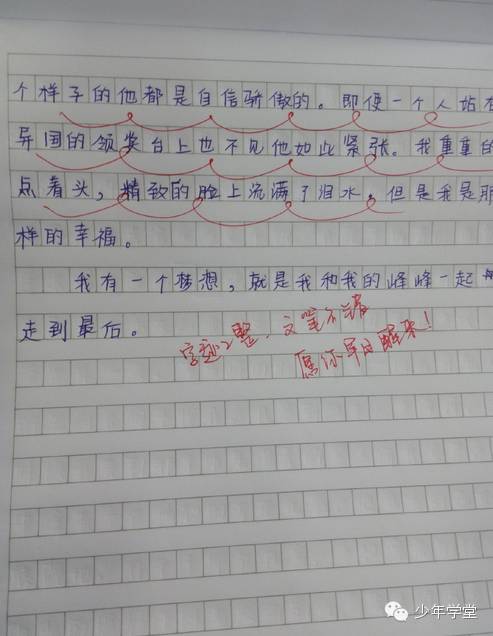 个样子的他都是自信骄傲的。即便一个人站在
异国的颁奖台上也不见他如此紧张。我重重的
点着头，精致的脸上流满了泪水，但是我是那
样的幸福。
我有一个梦想，就是我和我的峰峰一起
走到最后。
字迹工整，文笔不错
愿你早日醒来！
少年学堂